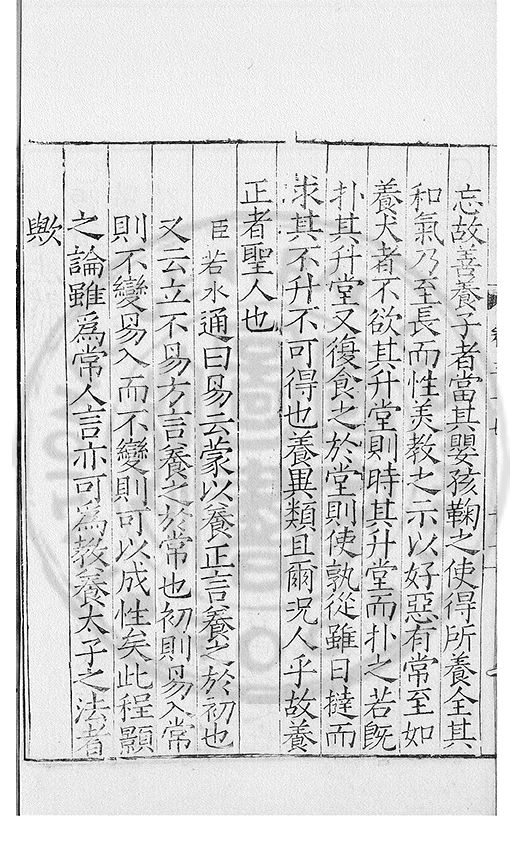 忘故善養子者當其嬰孩鞠之使得所養全其
和氣乃至長而性美教之示以好惡有常至如
養犬者不欲其升堂則時其升堂而扑之若旣
扑其升堂又復食之於堂則使孰從雖日撻而
求其不升不可得也養異類且爾況人乎故養
正者聖人也
臣若水通曰易云蒙以養正言養之於初也
又云立不易方言養之於常也初則易入常
則不變易入而不變則可以成性矣此程顥
之論雖爲常人言亦可爲教養太子之法者
歟